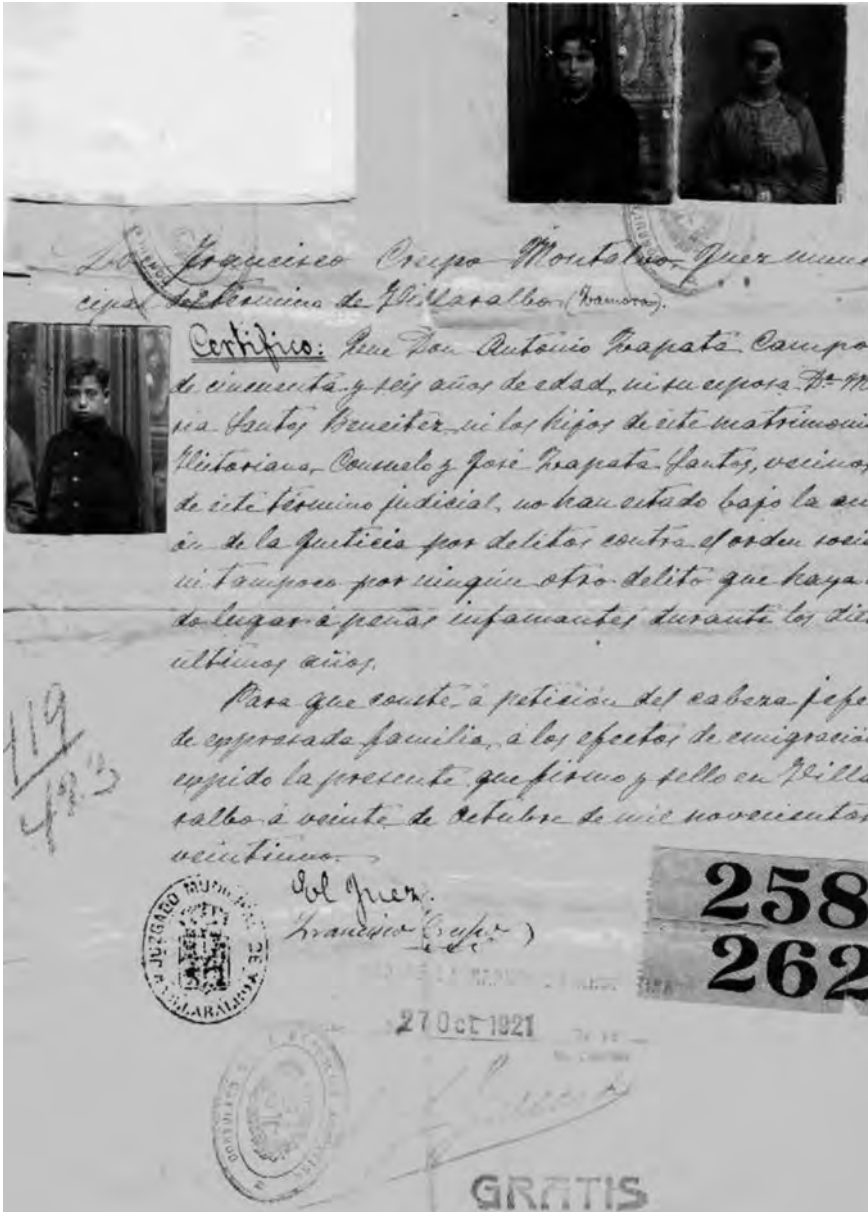 Don Francisco Crespo Montalvo, Juez muni
cipal del término de Villaralbo (Zamora).
Certifico: Que Don Antonio Zapata Campo
de cincuenta y seis años de edad, ni su esposa Dª Ma
ria Santos Beneitez, ni los hijos de este matrimoni
Victoriana, Consuelo y José Zapata Santos, vecinos
de este término judicial, no han estado bajo la
ón de la Justicia por delitos contra el orden soci
ni tampoco por ningún otro delito que haya
do lugar á penas infamantes durante los diez
últimos años.
Para que conste, á petición del cabeza jefe
de expresada familia, á los efectos de emigración
expido la presente que firmo y sello en Villa
ralbo á veinte de Octubre de mil novecientos
veintiuno.
El Juez,
Francisco Crespo
119
483
JUZGADO MUNICIPAL DE VILLARALBO
258
262
27 Oct 1921
GRATIS